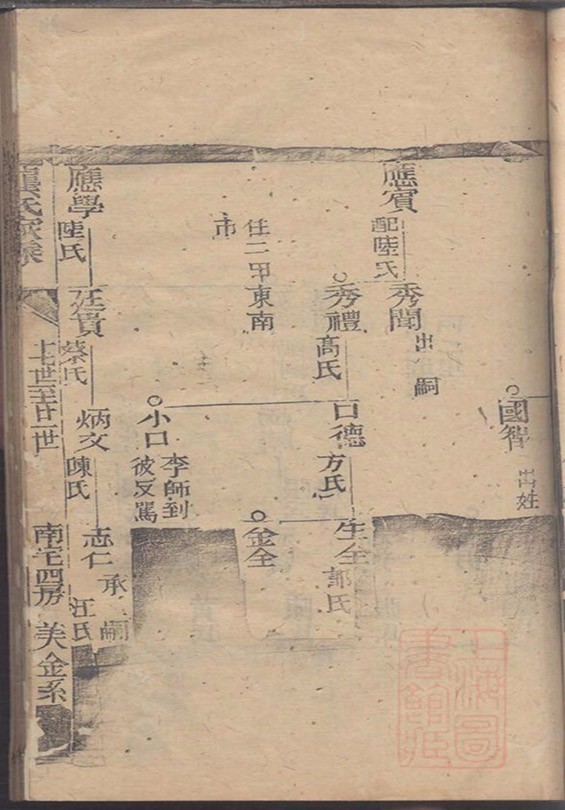 國智 出姓
應賓 配陸氏
秀聞 出嗣
秀禮 高氏
口德 方氏
生全 郭氏
金全
住二甲東南
市
小口 李師到
彼反罵
應學 陸氏
廷貴 蔡氏
炳文 陳氏
志仁 承嗣 汪氏
龔氏家乘
七世至廿一世
南宅四房 美金系
上海圖
書館藏